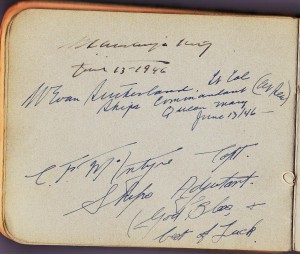 King
June 13-1946
W Evan Sutherland Lt Col
Ships Commandant
Queen Mary
June 13/46 -
C. F. McIntyre Capt.
Ships Adjutant.
(God Bless &
best of Luck.